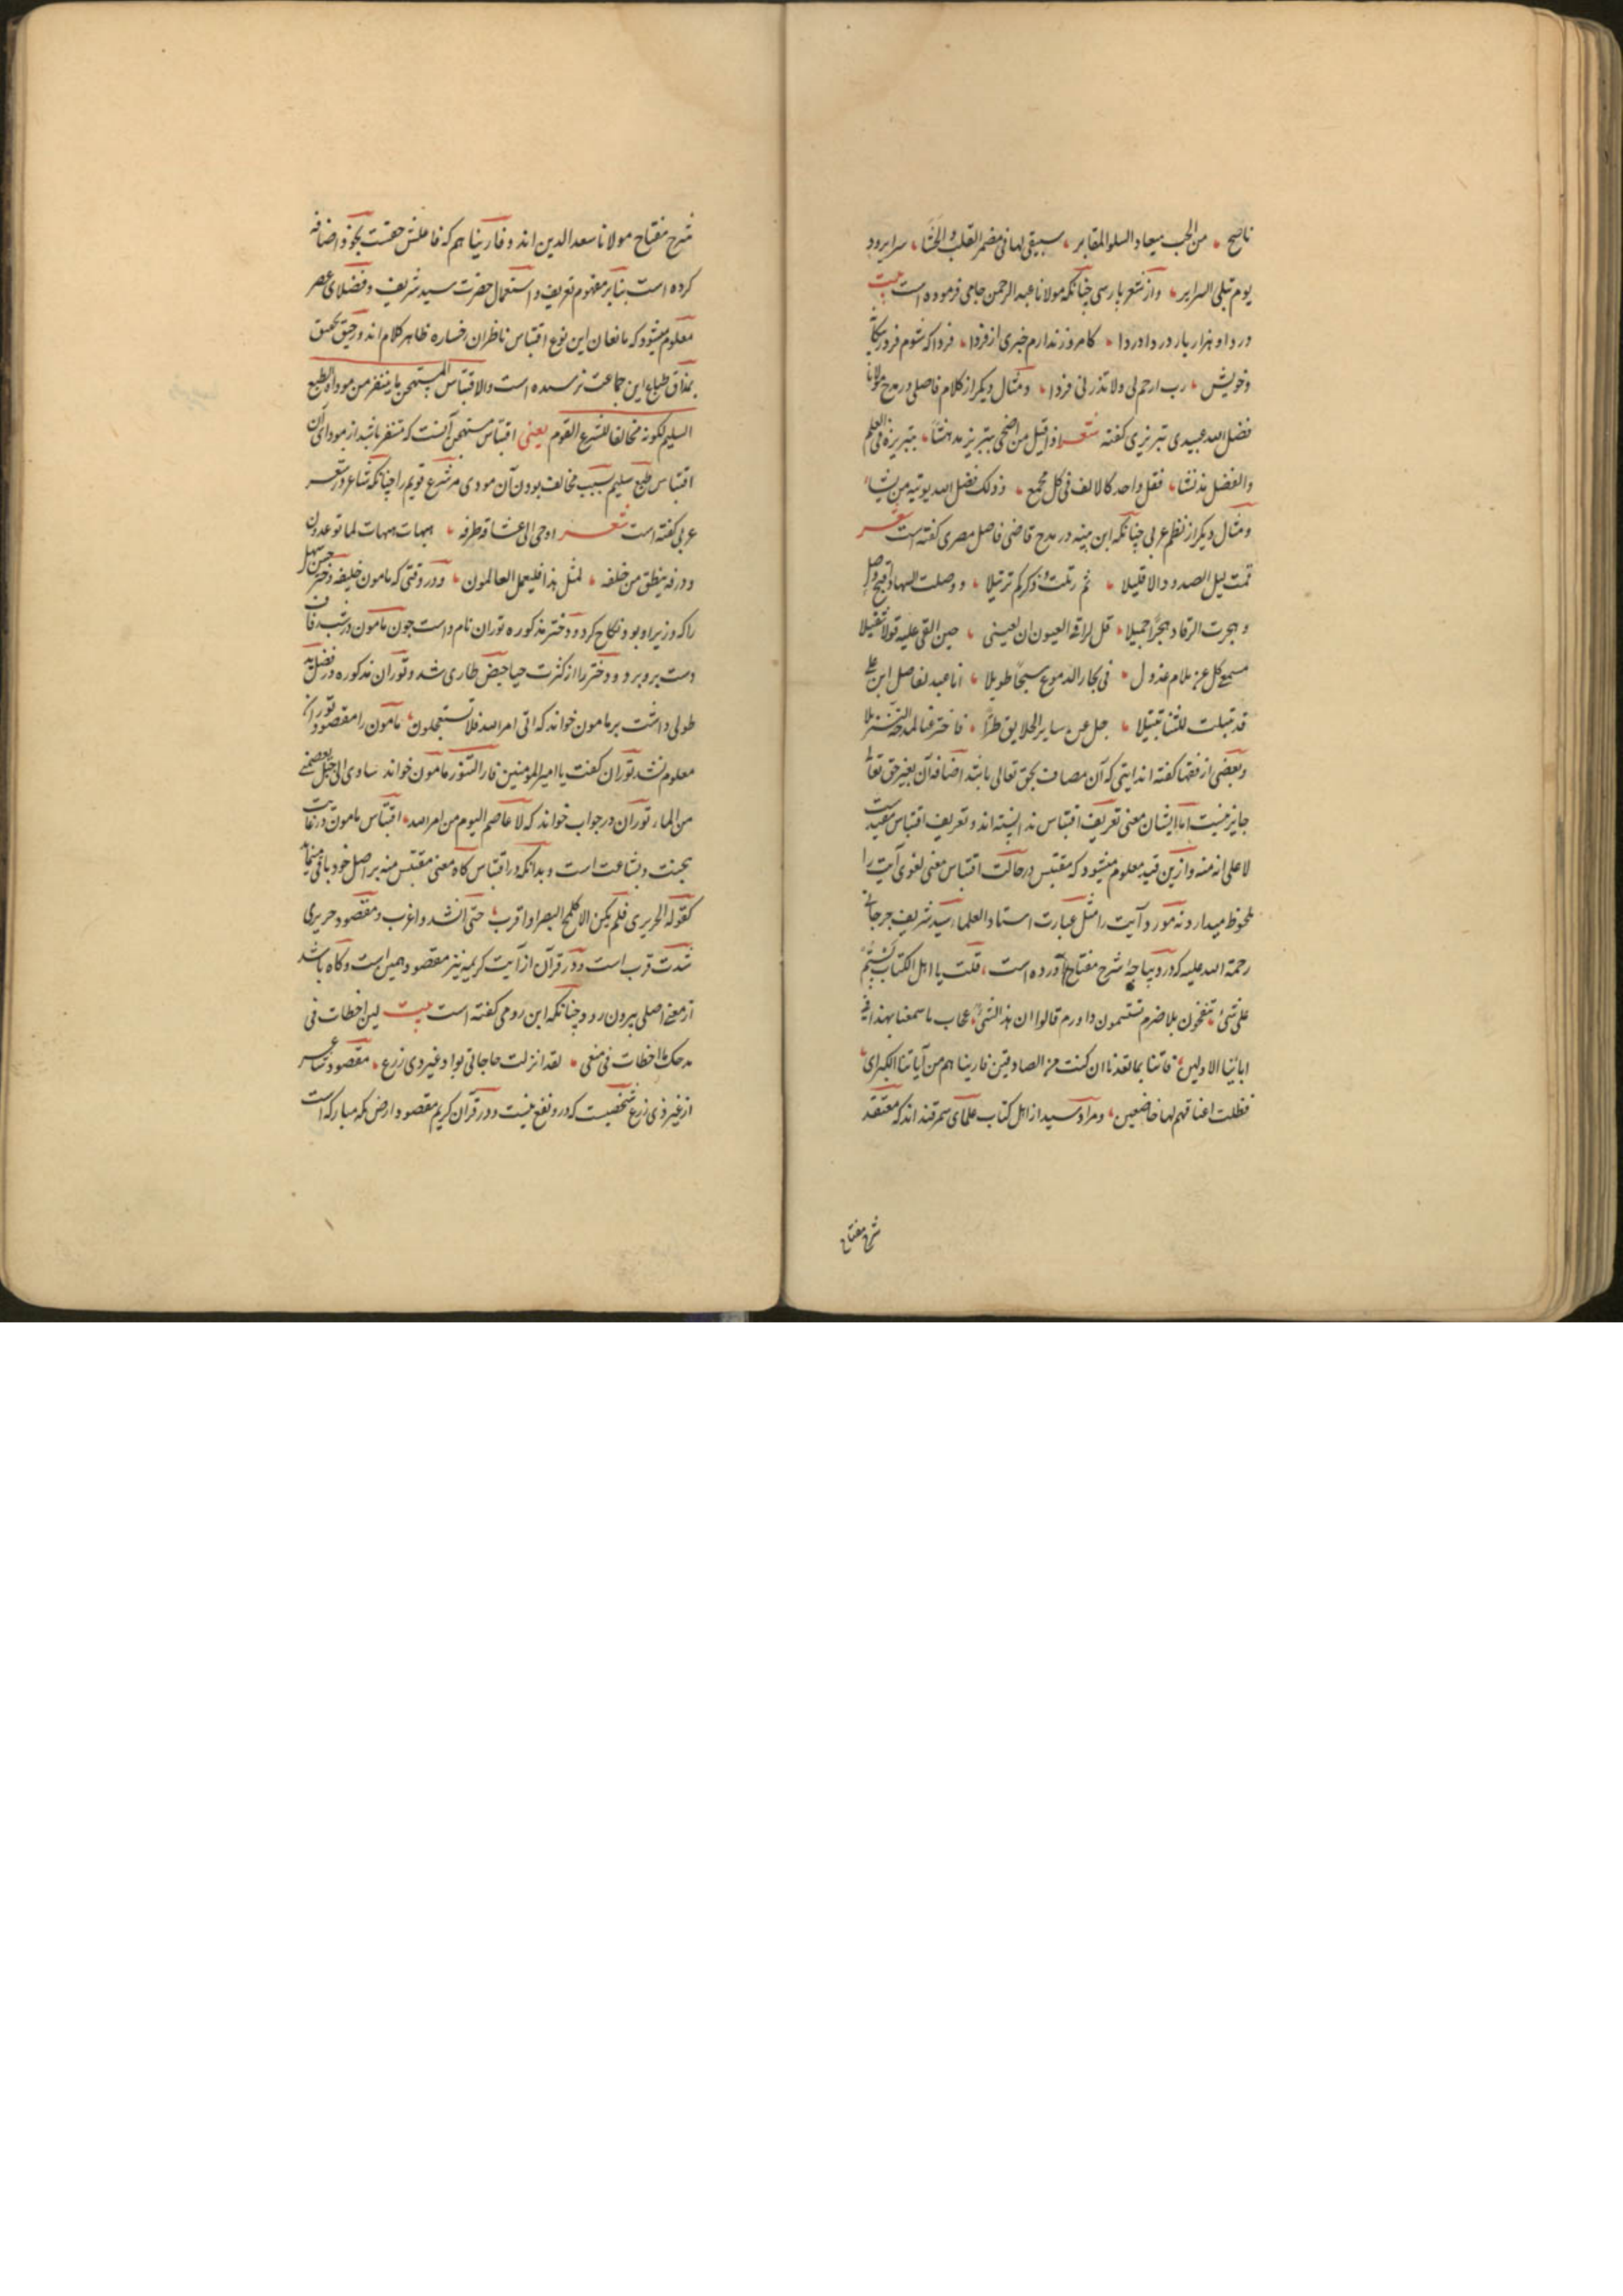 ناصح من الحب میعاد السلو المقابر سیبقی لها فی مضمر القلب و الحشا سرایر ود
یوم تبلی السرایر واز شعر پارسی چنانکه مولانا عبد الرحمن جامی فرموده است بیت
دردا و هزار بار دردا دردا کامروز ندارم خبری از فردا فردا که شوم فرد ز بیکانه
وخویش رب ارحم لی ولا تذرنی فردا و مثال دیکر از کلام فاضلی در مدح مولانا
فضل الله عبیدی تبریزی کفته شعر اذا قیل من اضحی بتبریز مدهشا بتبریزه فی العلم
والفضل قد نشا فقل واحد کالالف فی کل مجمع وذلک فضل الله یوتیه من یشاء
و مثال دیکر از نظم عربی چنانکه ابن نبیه در مدح قاضی فاضل مصری کفته است شعر
قمت لیل الصدود الا قلیلا ثم رتلت ذکرکم ترتیلا و وصلت السهاد اقبح وصل
و هجرت الرقاد هجرا جمیلا قل لراقد العیون ان لعینی حین القی علیه قولا ثقیلا
مسمع کل عن ملام عذول فی بحار الدموع سبحا طویلا انا عبد لفاضل ابن علی
قد تبتلت للثنا تبتیلا جل عن سایر الخلایق طرا فاخترعنا لمدحه التنزیلا
وبعضی از فقها کفته اند ایتی که آن مضاف بحق تعالی باشد اضافه آن بغیر حق تعالی
جایز نیست اما ایشان معنی تعریف اقتباس ندانسته اند و تعریف اقتباس مقید است
لا علی انه منه وازین قید معلوم میشود که مقتبس در حالت اقتباس معنی لغوی آیت را
ملحوظ میدارد نه مورد آیت را مثل عبارت استاد العلماء سید شریف جرجانی
رحمة الله علیه که در دیباجه شرح مفتاح آورده است قلت یا اهل الکتاب لستم
علی شیء تنفخون بلا ضرم تستسمون ذا ورم قالوا ان هذا لشیء عجاب ما سمعنا بهذا فی
ابائنا الاولین فاتنا بما تعدنا ان کنت من الصادقین فاریناهم من آیاتنا الکبری
فظلت اعناقهم لها خاضعین و مراد سید از اهل کتاب علمای سمرقند اند که معتقد
شرح مفتاح
شرح مفتاح مولانا سعد الدین اند و فاریناهم که فاعلش حقست بخود اضافه
کرده است بنابر مفهوم تعریف و استعمال حضرت سید شریف و فضلای عصر
معلوم میشود که مانعان این نوع اقتباس ناظران رخساره ظاهر کلام اند و رحیق تحقیق
بمذاق طباع این جماعت نرسیده است والاقتباس المستهجن ما یتنفر من موداه الطبع
السلیم لکونه مخالفا للشرع القویم یعنی اقتباس مستهجن آنست که متنفر باشد از مودای آن
اقتباس طبع سلیم بسبب مخالف بودن آن مودی مر شرع قویم را چنانکه شاعر در شعر
عربی کفته است شعر اوحی الی عشاقه طرفه هیهات هیهات لما توعدون
وردفه ینطق من خلفه لمثل هذا فلیعمل العالمون و در وقتی که مامون خلیفه دختر حسن سهل
را که وزیر او بود نکاح کرد و دختر مذکوره توران نام داست چون مامون در شب زفاف
دست برو برد و دختر را از کثرت حیا حیض طاری شد و توران مذکوره در فضل ید
طولی داشت بر مامون خواند که اتی امر الله فلا تستعجلون مامون را مقصود توران
معلوم نشد توران کفت یا امیر المؤمنین فار التنور مامون خواند ساوی الی جبل یعصمنی
من الماء توران در جواب خواند که لا عاصم الیوم من امر الله اقتباس مامون در غایت
هجنت و بشاعت است و بدانکه در اقتباس کاه معنی مقتبس منه بر اصل خود باقی میماند
کقوله الحریری فلم یکن الا کلمح البصر او اقرب حتی انشد و اغرب و مقصود حریری
شدت قرب است و در قرآن از آیت کریمه نیز مقصود همین است و کاه باشد
از معنی اصلی بیرون رود چنانکه ابن رومی کفته است بیت لین اخطات فی
مدحک ما اخطات فی منعی لقد انزلت حاجاتی بواد غیر ذی زرع مقصود شاعر
از غیر ذی زرع شخصیست که درو نفع نیست و در قرآن کریم مقصود ارض مکه مبارکه است